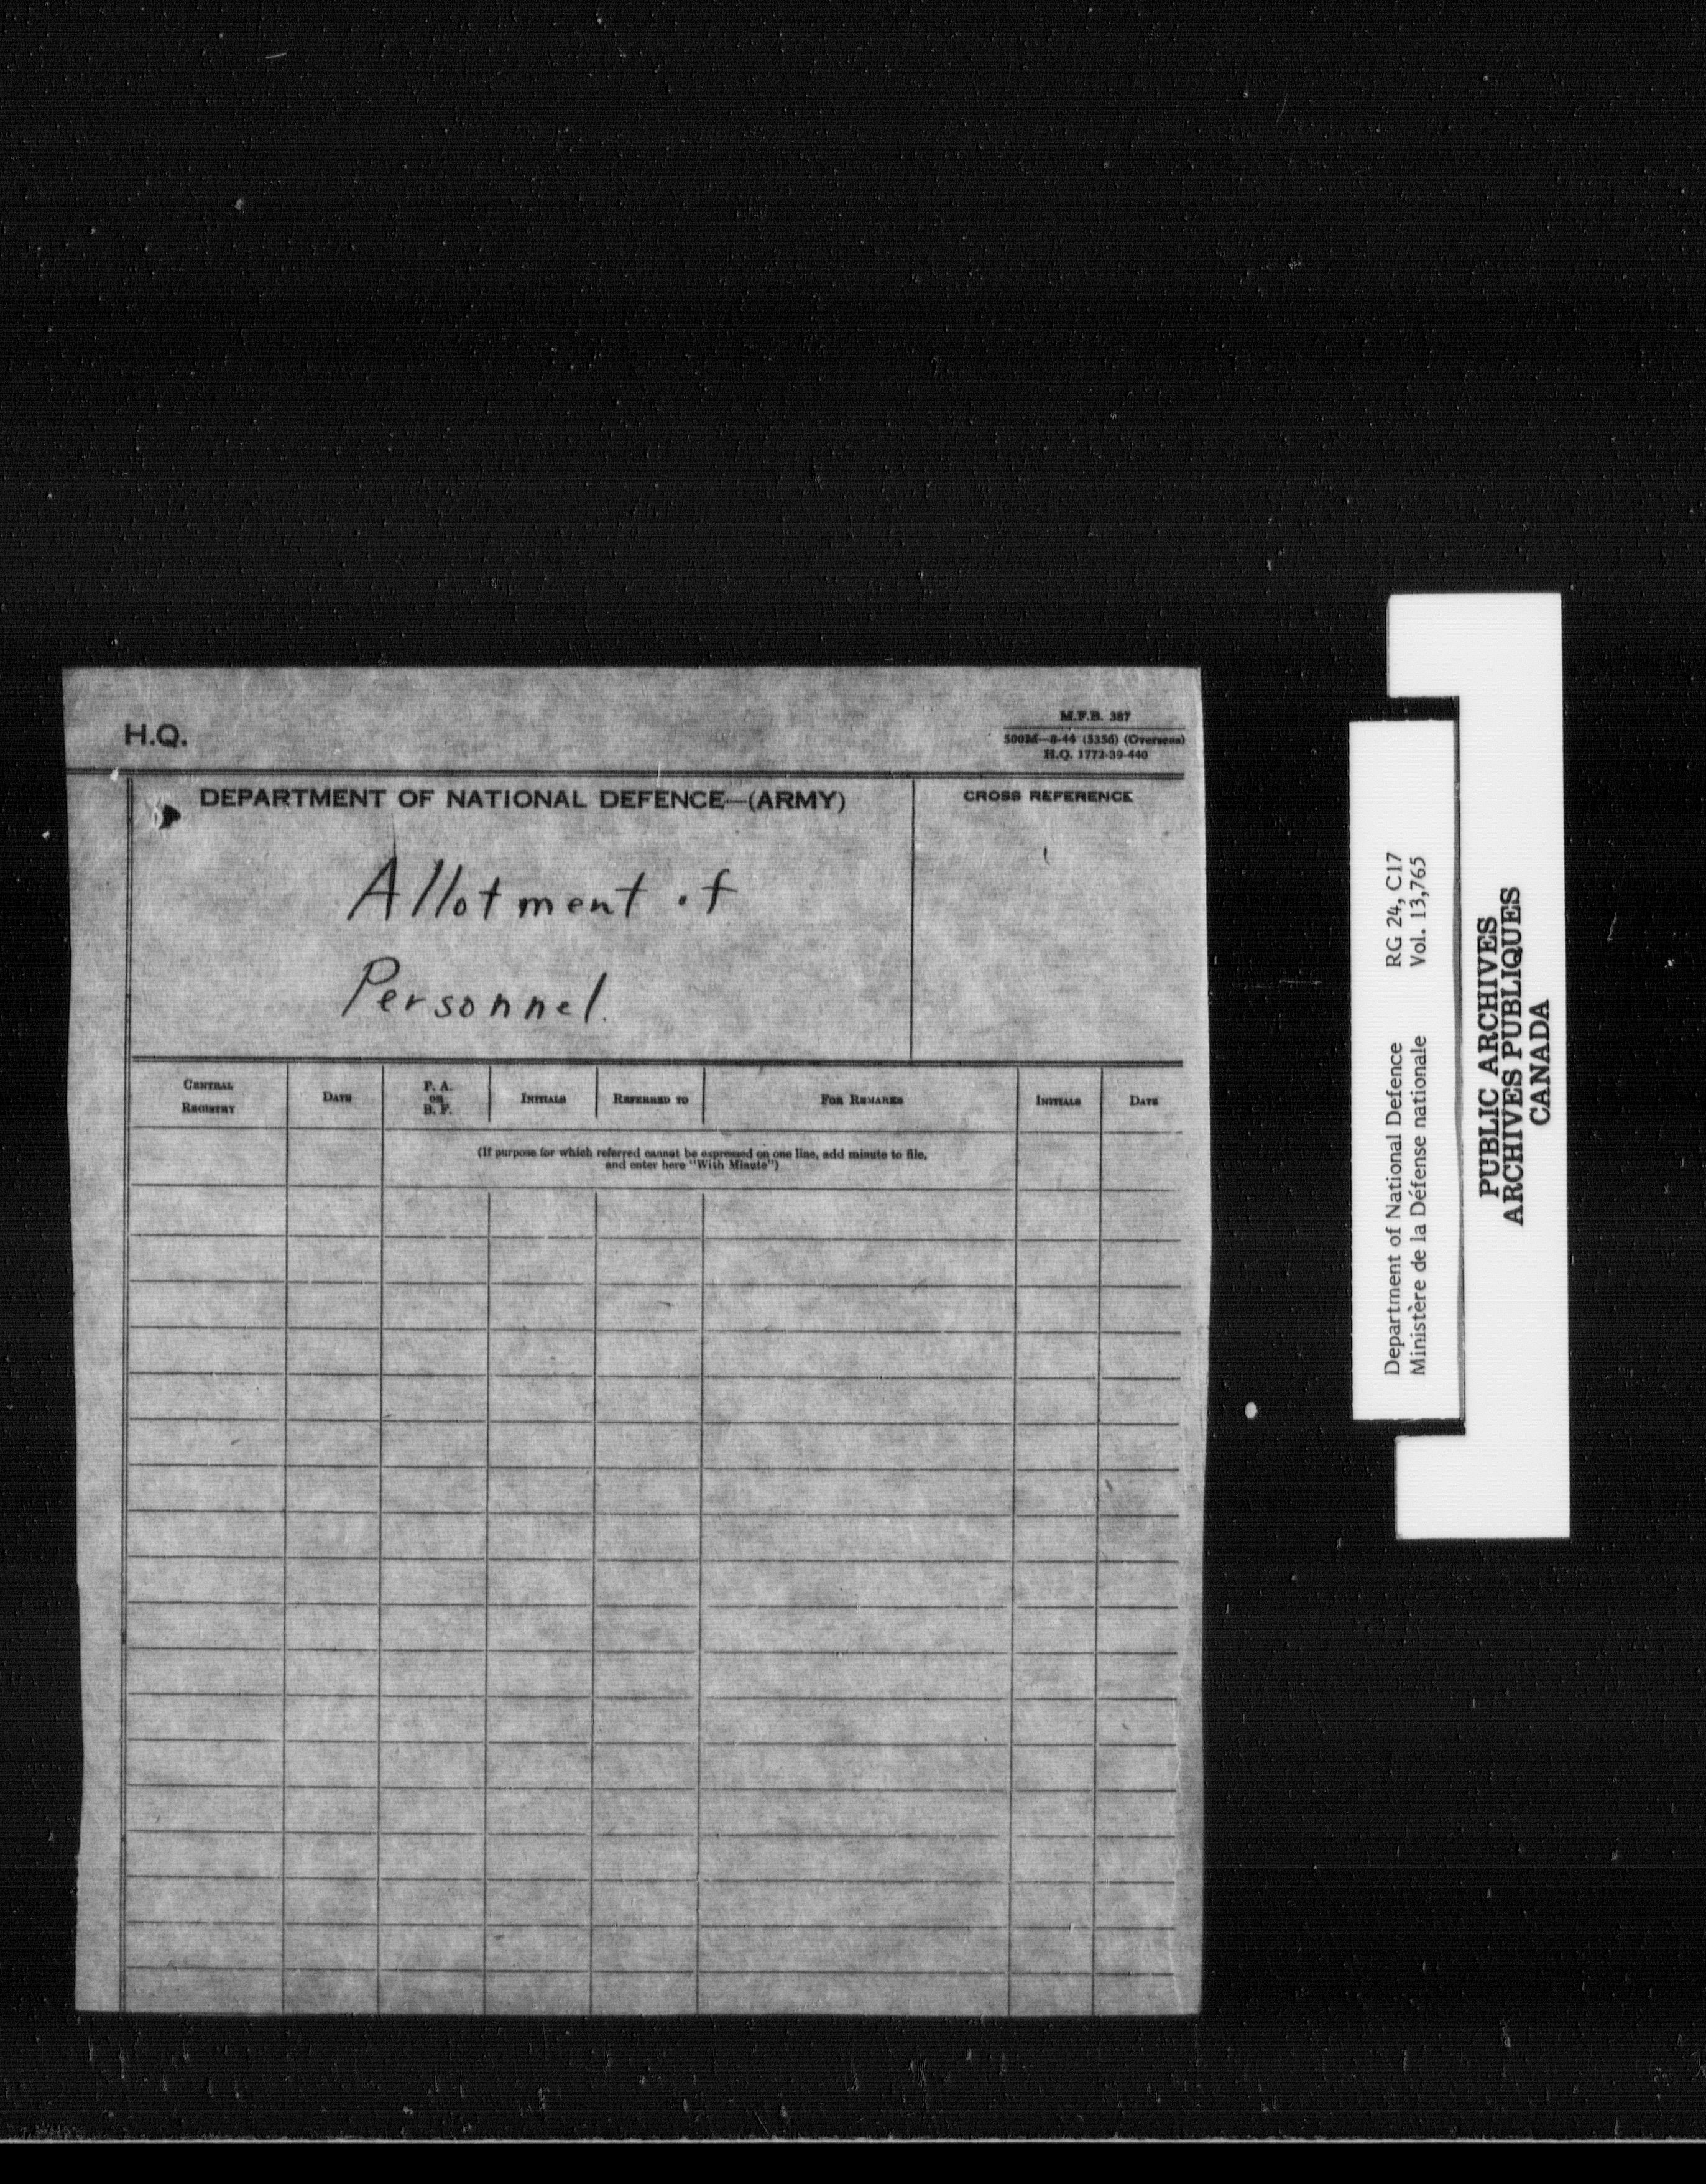 H.Q.
M.F.B. 387
500M—8-44 (5356) (Overseas)
H.Q. 1772-39-440
DEPARTMENT OF NATIONAL DEFENCE—(ARMY)
CROSS REFERENCE
Allotment of
Personnel.
CENTRAL
REGISTRY
DATE
P. A.
OR
B. F.
INITIALS
REFERRED TO
FOR REMARKS
INITIALS
DATE
(If purpose for which referred cannot be expressed on one line, add minute to file,
and enter here "With Minute")
Department of National Defence RG 24, C17
Ministère de la Défense nationale Vol. 13,765
PUBLIC ARCHIVES
ARCHIVES PUBLIQUES
CANADA